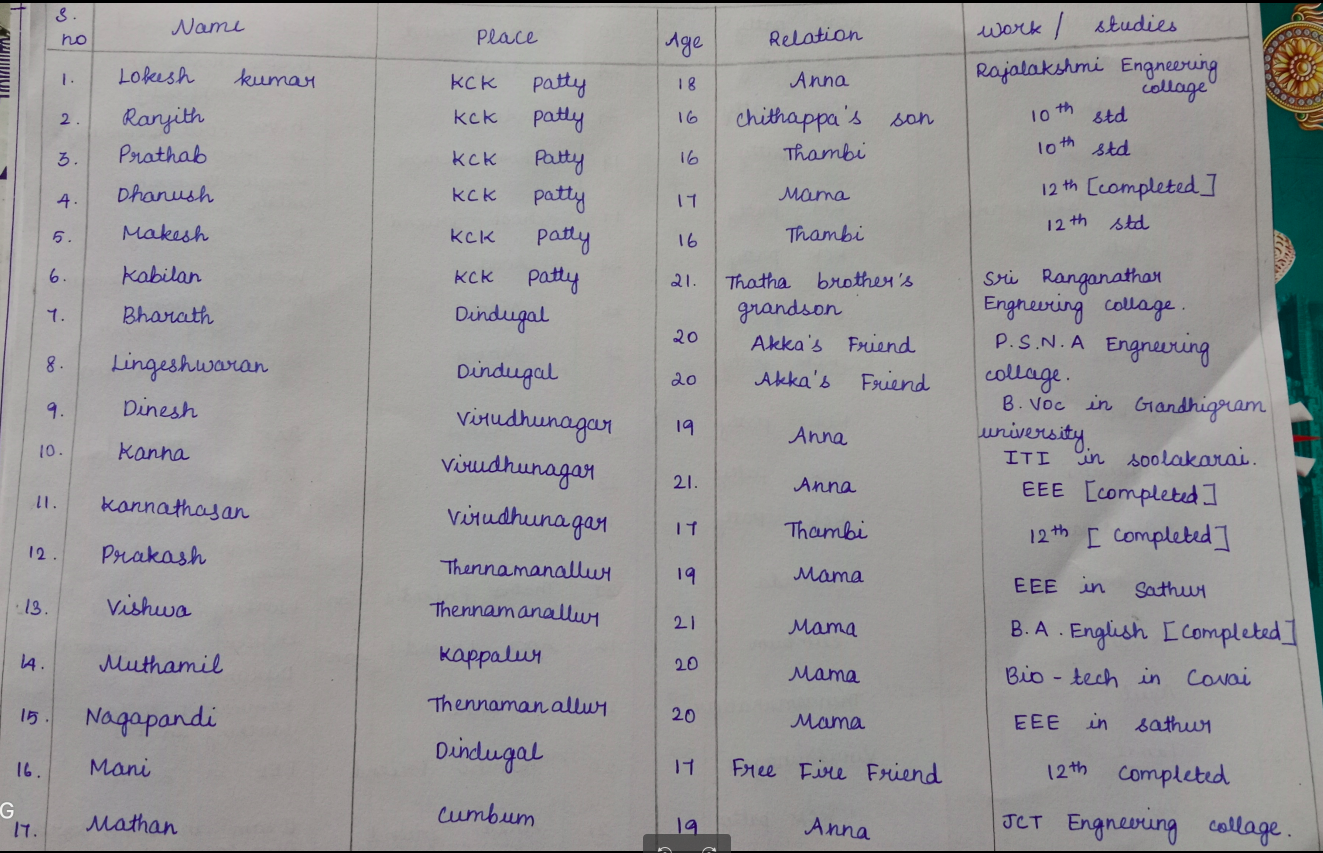 S. no Name Place Age Relation Work / studies
1. Lokesh kumar KCK patty 18 Anna Rajalakshmi Engneering collage
2. Ranjith KCK patty 16 chithappa's son 10th std
3. Prathab KCK Patty 16 Thambi 10th std
4. Dhanush KCK patty 17 Mama 12th [completed]
5. Makesh KCK patty 16 Thambi 12th std
6. Kabilan KCK patty 21. Thatha brother's grandson Sri Ranganathar Engneering collage.
7. Bharath Dindugal 20 Akka's Friend P.S.N.A Engneering collage.
8. Lingeshwaran Dindugal 20 Akka's Friend B.Voc in Gandhigram university
9. Dinesh Virudhunagar 19 Anna ITI in soolakarai.
10. Kanna Virudhunagar 21. Anna EEE [completed]
11. Kannathasan Virudhunagar 17 Thambi 12th [completed]
12. Prakash Thennamanallur 19 Mama EEE in Sathur
13. Vishwa Thennamanallur 21 Mama B.A. English [completed]
14. Muthamil Kappalur 20 Mama Bio-tech in Covai
15. Nagapandi Thennamanallur 20 Mama EEE in sathur
16. Mani Dindugal 17 Free Fire Friend 12th completed
17. Mathan Cumbum 19 Anna JCT Engneering collage.
G